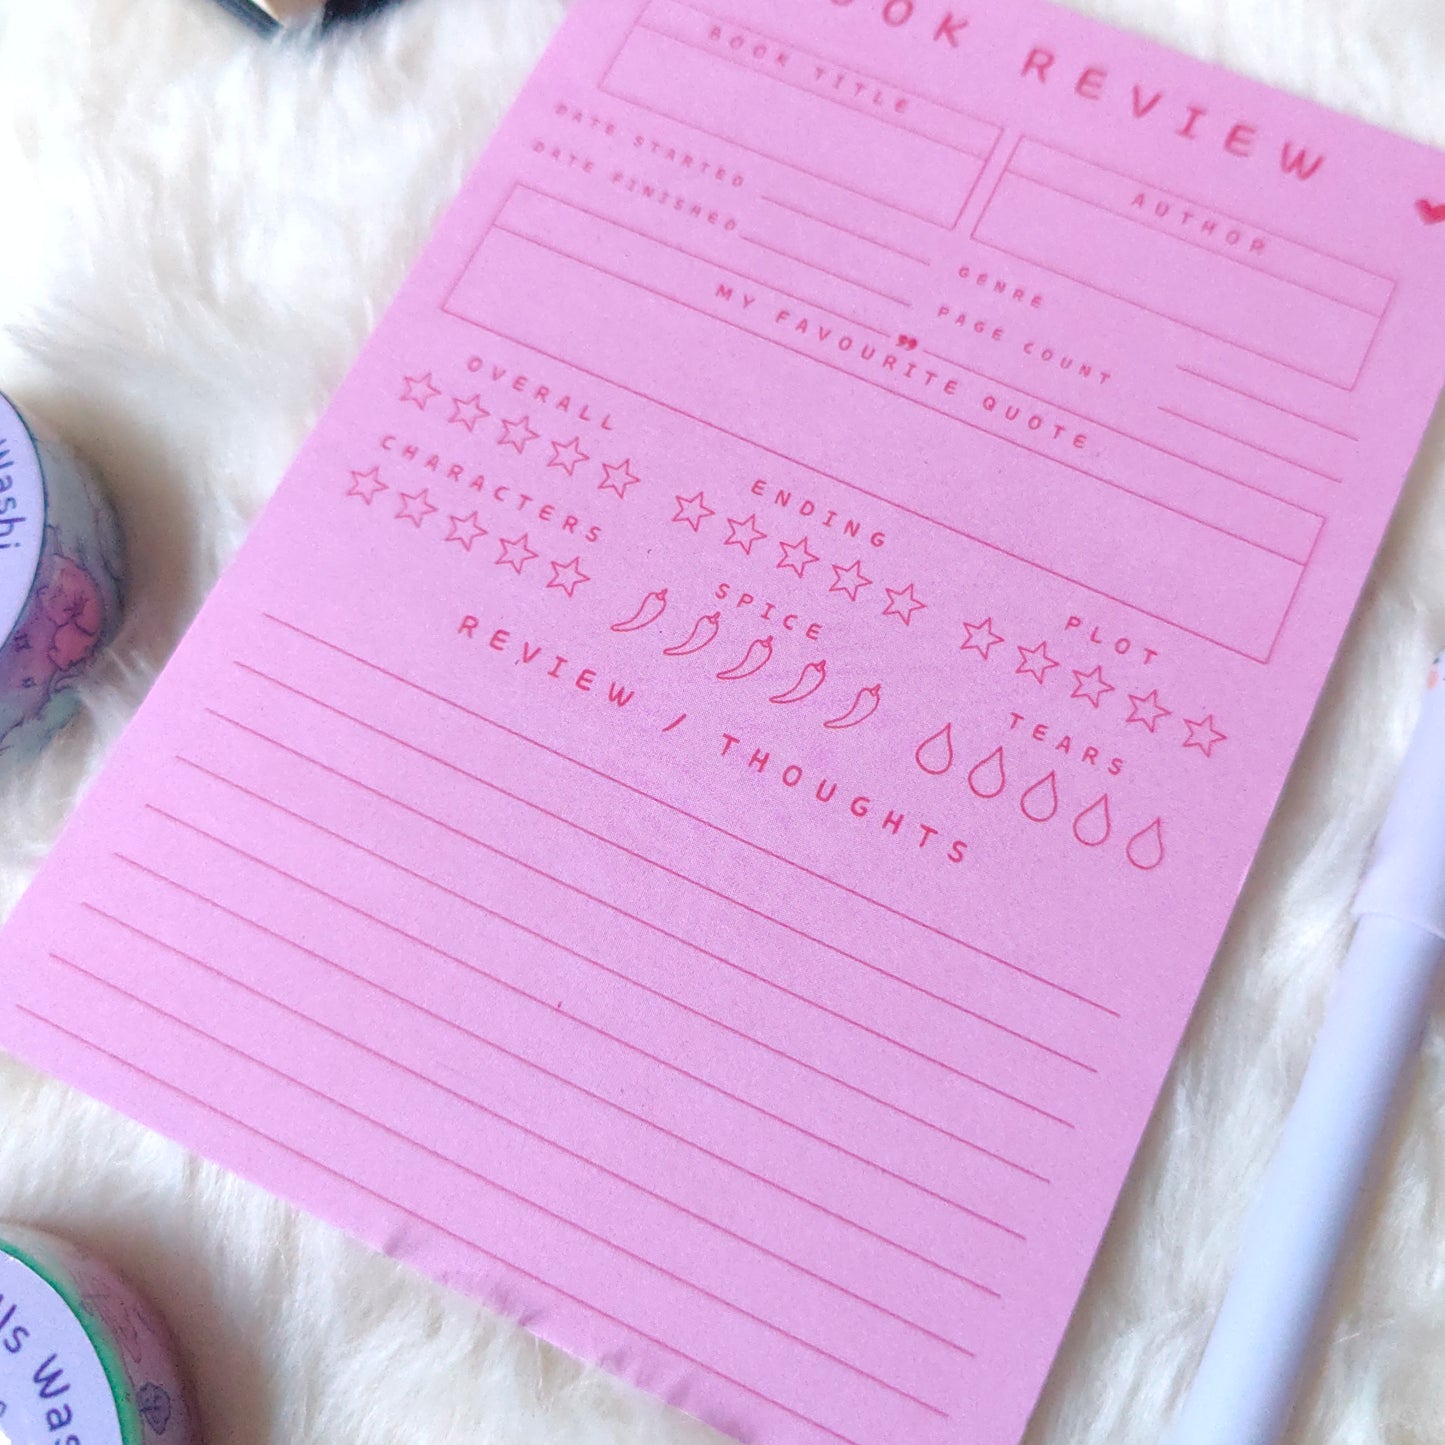 OOK REVIEW
BOOK TITLE
AUTHOR
DATE STARTED
DATE FINISHED
GENRE
PAGE COUNT
MY FAVOURITE QUOTE
OVERALL
ENDING
PLOT
CHARACTERS
SPICE
TEARS
REVIEW / THOUGHTS
Washi
ls Was